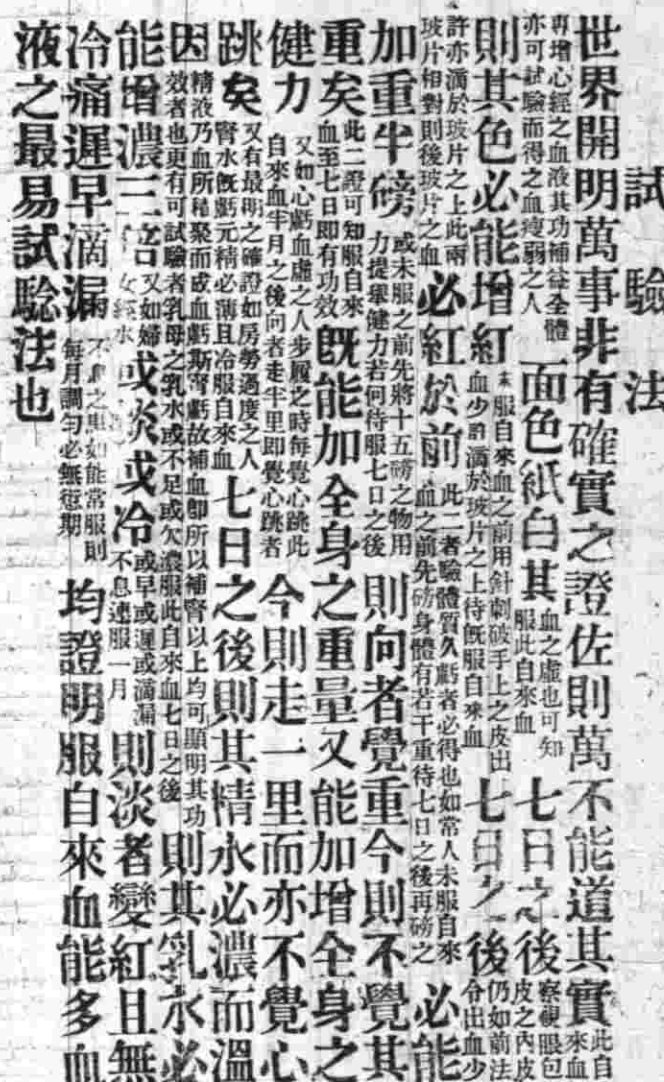 試驗法
世界開明萬事非有確實之證佐則萬不能道其實此自來血
專增心經之血液其功補益全體亦可試驗而得之血瘦弱之人面色紙白其血之虛也可知服此自來血七日之後察視眼包皮之內皮
則其色必能增紅服自來血之前用針刺破手上之皮出血少許滴於玻片之上待旣服自來血七日之後仍如前法令出血少
許亦滴於玻片之上此兩玻片相對則後玻片之血必紅於前此二者驗體質久虧者必得也如常人未服自來血之前先磅身體有若干重待七日之後再磅之必能
加重半磅或未服之前先將十五磅之物用力提舉健力若何待服七日之後則向者覺重今則不覺其
重矣此二證可知服自來血至七日即有功效旣能加全身之重量又能加增全身之
健力又如心虧血虛之人步履之時每覺心跳此自來血半月之後向者走半里即覺心跳者今則走一里而亦不覺心
跳矣又有最明之確證如房勞過度之人腎水旣虧元精必薄且冷服自來血七日之後則其精水必濃而溫
因精液乃血所稀聚而成血虧斯腎虧故補血卽所以補腎以上均可顯明其功效者也更有可試驗者乳母之乳水或不足或欠濃服此自來血七日之後則其乳水必
能增濃三倍又如婦女經水或淡或冷或早或遲或滴漏不息連服一月則淡者變紅且無
冷痛遲早滴漏不息之患如能常服則每月調勻必無愆期均證明服自來血能多血
液之最易試驗法也